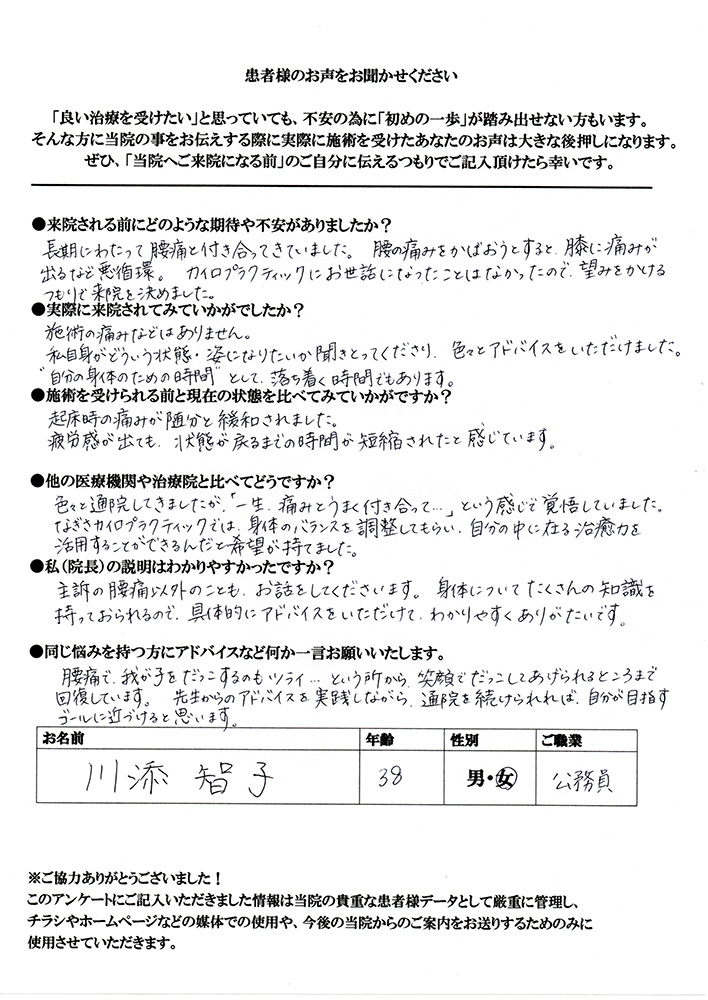 患者様のお声をお聞かせください
「良い治療を受けたい」と思っていても、不安の為に「初めの一歩」が踏み出せない方もいます。
そんな方に当院の事をお伝えする際に実際に施術を受けたあなたのお声は大きな後押しになります。
ぜひ、「当院へご来院になる前」のご自分に伝えるつもりでご記入頂けたら幸いです。
●来院される前にどのような期待や不安がありましたか？
長期にわたって腰痛と付き合ってきていました。 腰の痛みをかばおうとすると、膝に痛みが
出るなど悪循環。 カイロプラクティックにお世話になったことはなかったので、望みをかける
つもりで来院を決めました。
●実際に来院されてみていかがでしたか？
施術の痛みなどはありません。
私自身がどういう状態・姿になりたいか聞きとってくださり、色々とアドバイスをいただけました。
"自分の身体のための時間" として、落ち着く時間でもあります。
●施術を受けられる前と現在の状態を比べてみていかがですか？
起床時の痛みが随分と緩和されました。
疲労感が出ても、状態が戻るまでの時間が短縮されたと感じています。
●他の医療機関や治療院と比べてどうですか？
色々と通院してきましたが、「一生、痛みとうまく付き合って…」という感じで覚悟していました。
なぎさカイロプラクティックでは、身体のバランスを調整してもらい、自分の中に在る治癒力を
活用することができるんだと希望が持てました。
●私（院長）の説明はわかりやすかったですか？
主訴の腰痛以外のことも、お話をしてくださいます。 身体についてたくさんの知識を
持っておられるので、具体的にアドバイスをいただけて、わかりやすくありがたいです。
●同じ悩みを持つ方にアドバイスなど何か一言お願いいたします。
腰痛で、我が子をだっこするのもツライ… という所から、笑顔でだっこしてあげられるところまで
回復しています。 先生からのアドバイスを実践しながら、通院を続けられれば、自分が目指す
ゴールに近づけると思います。
お名前 年齢 性別 ご職業
川添 智子 38 男・女 公務員
※ご協力ありがとうございました！
このアンケートにご記入いただきました情報は当院の貴重な患者様データとして厳重に管理し、
チラシやホームページなどの媒体での使用や、今後の当院からのご案内をお送りするためのみに
使用させていただきます。